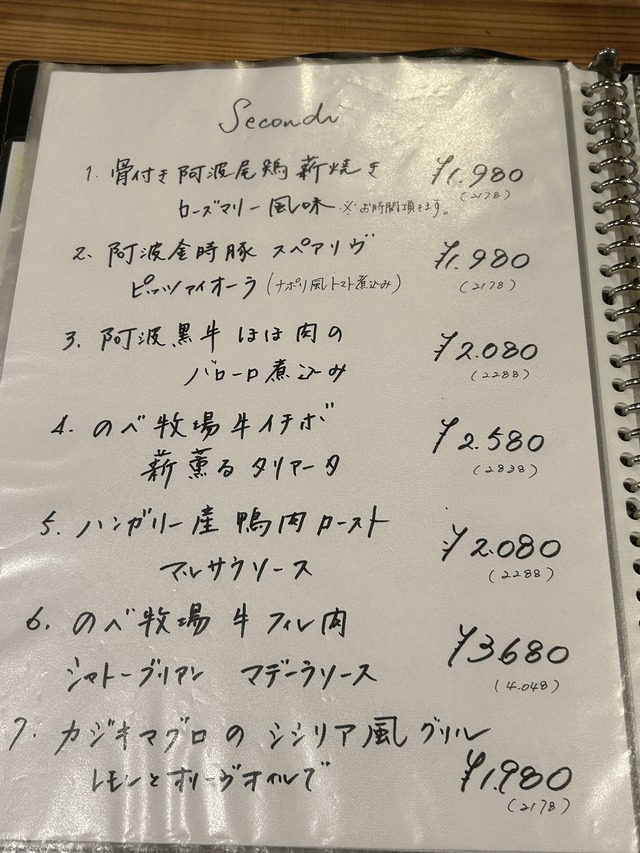 Secondi
1. 骨付き阿波尾鶏薪焼き ¥1.980
(2178)
ローズマリー風味 ※お時間頂きます。
2. 阿波金時豚 スペアリヴ ¥1.980
ピッツァイオーラ (ナポリ風トマト煮込み) (2178)
3. 阿波黒牛ほほ肉の ¥2.080
バローロ煮込み (2288)
4. のべ牧場牛イチボ ¥2.580
薪薫るタリアータ (2838)
5. ハンガリー産鴨肉ロースト ¥2.080
マルサラソース (2288)
6. のべ牧場牛フィレ肉 ¥3680
シャトーブリアン マデーラソース (4.048)
7. カジキマグロのシシリア風グリル
レモンとオリーヴオイルで ¥1.980
(2178)